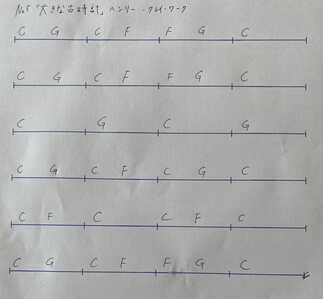 No.5「大きな古時計」ヘンリー・クレイ・ワーク
C G C F F G C
C G C F F G C
C G C G
C G C F C G C
C F C C F C
C G C F F G C